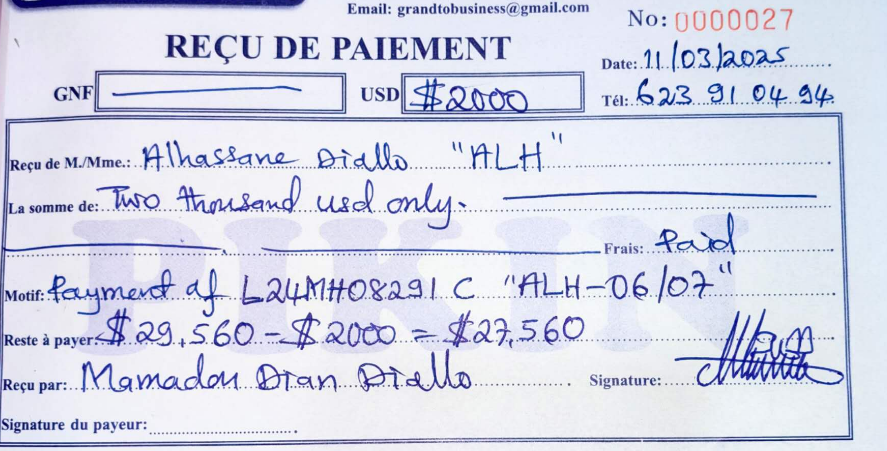 Email: grandtobusiness@gmail.com
No: 0000027
REÇU DE PAIEMENT
Date: 11/03/2025
GNF USD $2000
Tél: 623 91 04 94
Reçu de M./Mme.: Alhassane Diallo "ALH"
La somme de: Two thousand usd only.
Frais: Paid
Motif: Payment of L24MH08291C "ALH-06/07"
Reste à payer: $29,560 - $2000 = $27,560
Reçu par: Mamadou Dian Diallo Signature:
Signature du payeur:
PIKIN